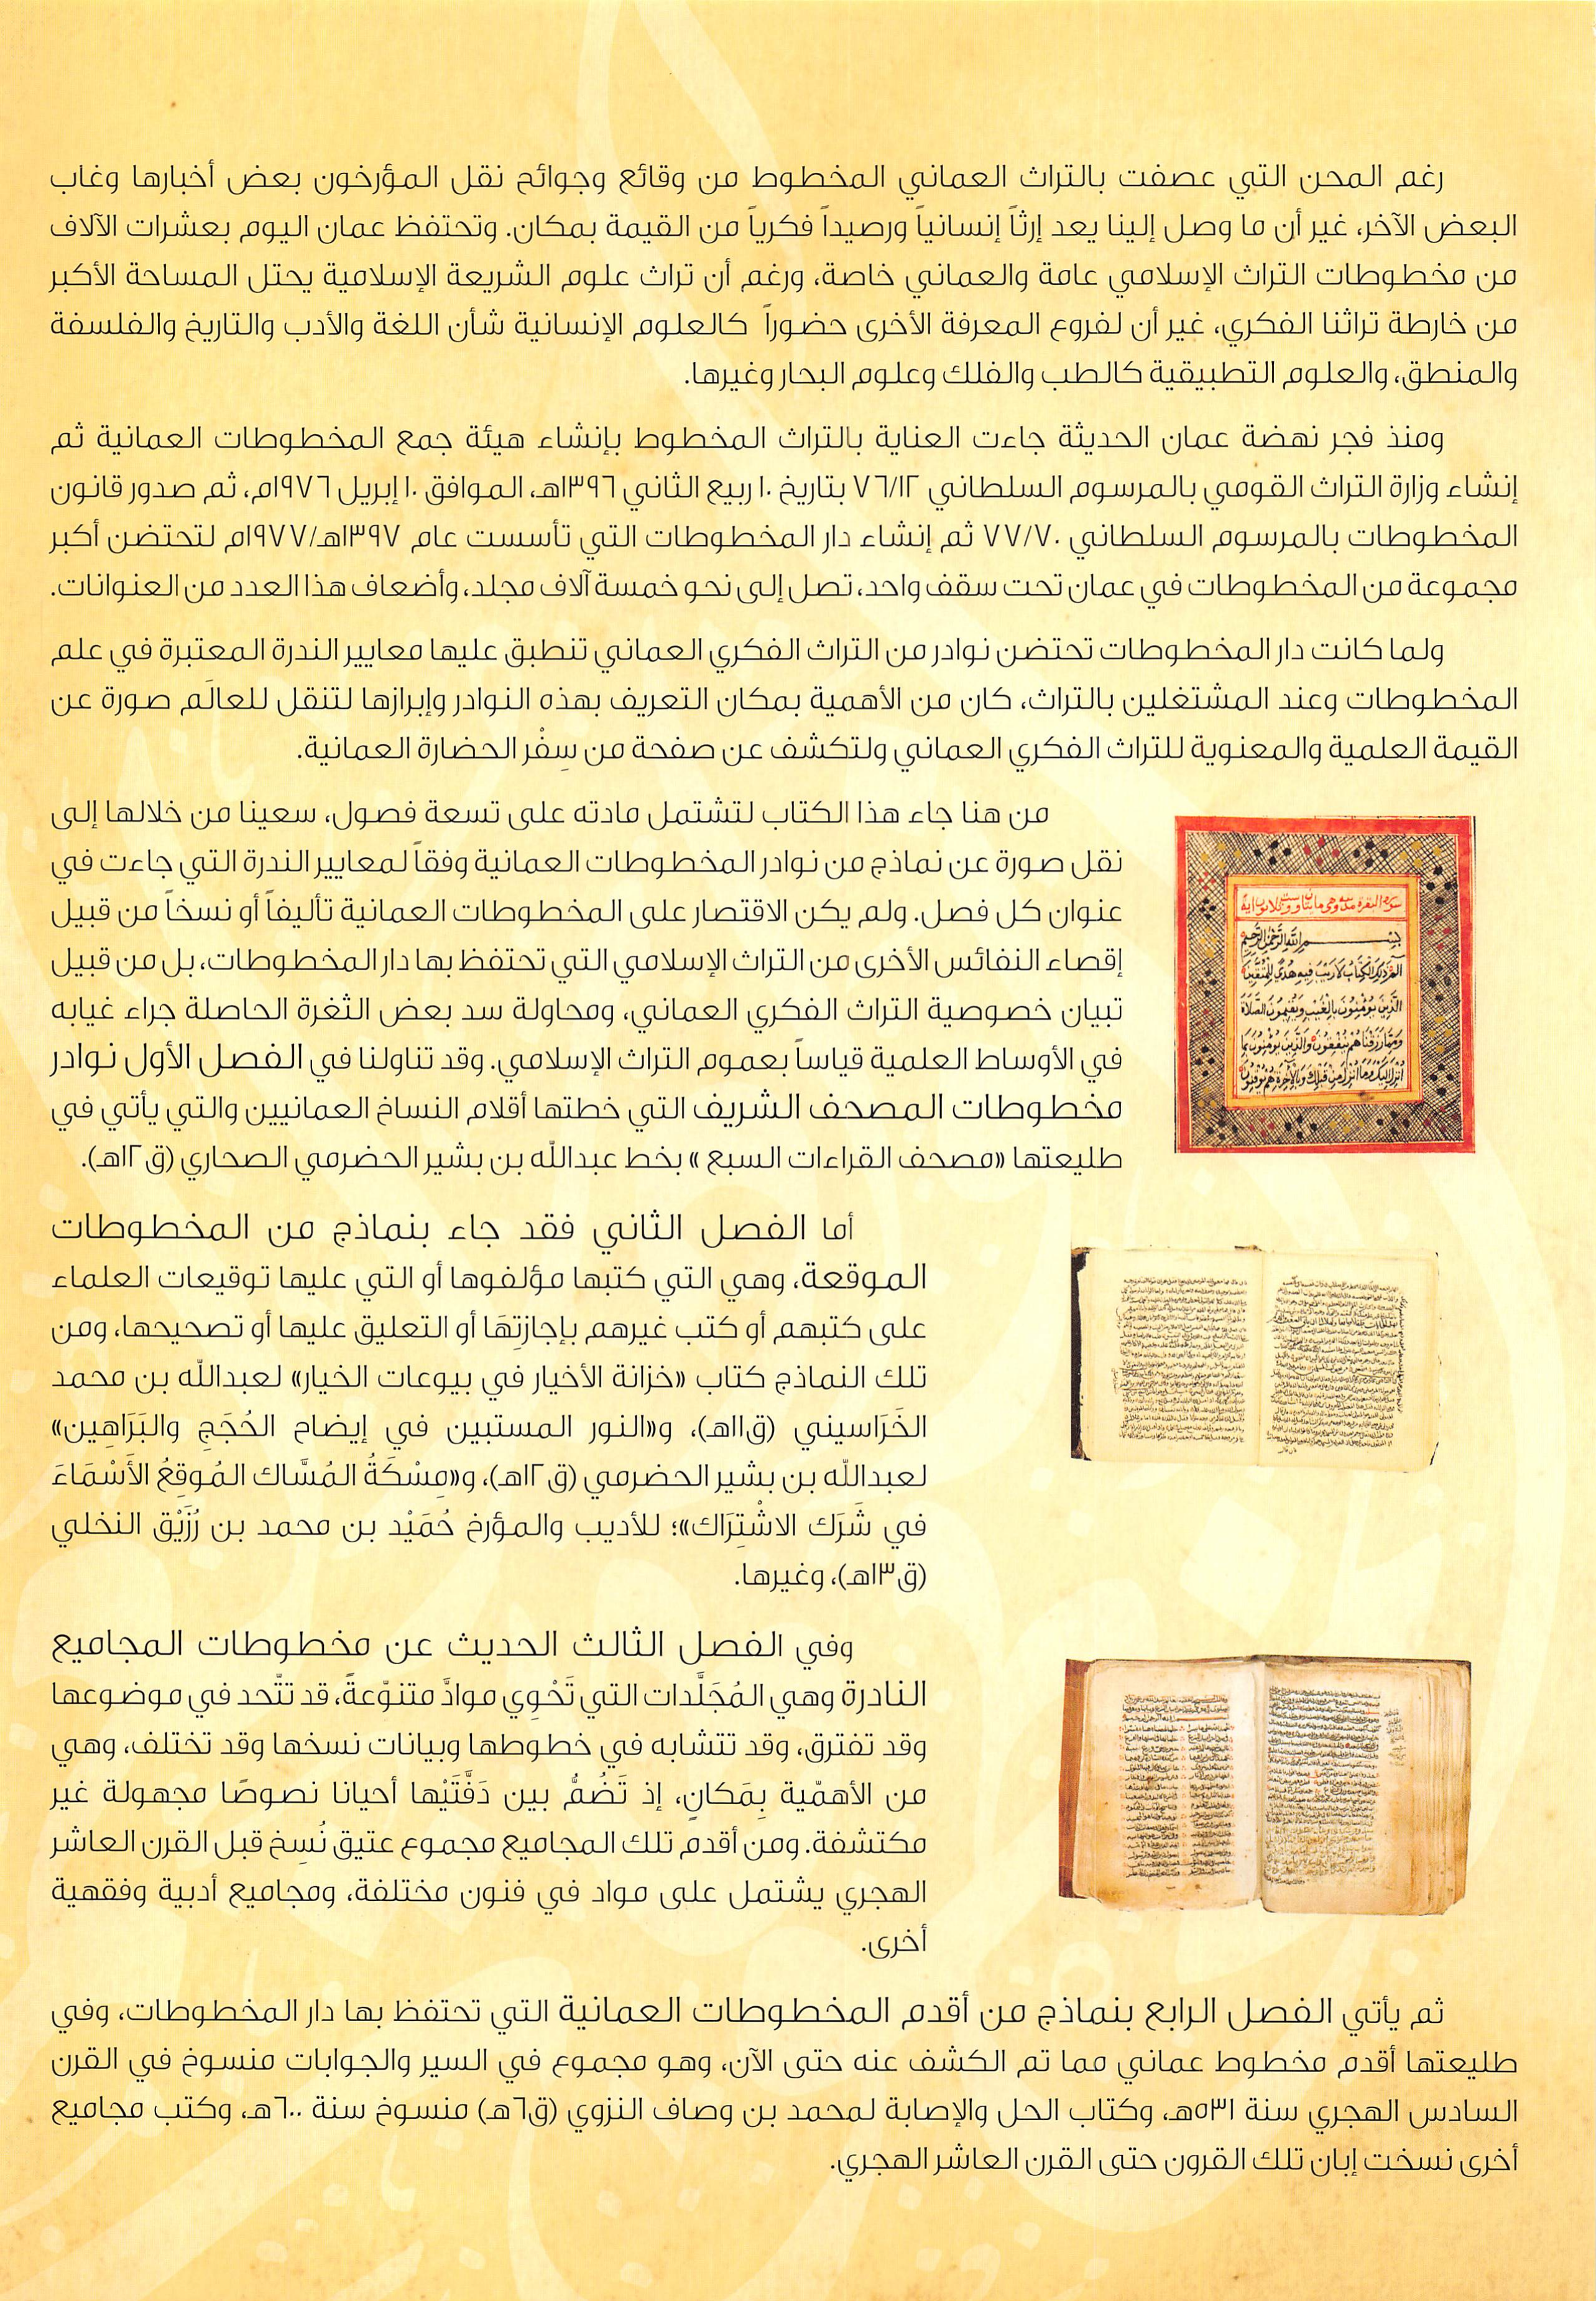 رغم المحن التي عصفت بالتراث العماني المخطوط من وقائع وجوائح نقل المؤرخون بعض أخبارها وغاب
البعض الآخر، غير أن ما وصل إلينا يعد إرثاً إنسانياً ورصيداً فكرياً من القيمة بمكان. وتحتفظ عمان اليوم بعشرات الآلاف
من مخطوطات التراث الإسلامي عامة والعماني خاصة، ورغم أن تراث علوم الشريعة الإسلامية يحتل المساحة الأكبر
من خارطة تراثنا الفكري، غير أن لفروع المعرفة الأخرى حضوراً كالعلوم الإنسانية شأن اللغة والأدب والتاريخ والفلسفة
والمنطق، والعلوم التطبيقية كالطب والفلك وعلوم البحار وغيرها.
ومنذ فجر نهضة عمان الحديثة جاءت العناية بالتراث المخطوط بإنشاء هيئة جمع المخطوطات العمانية ثم
إنشاء وزارة التراث القومي بالمرسوم السلطاني ٧٦/١٢ بتاريخ ١٠ ربيع الثاني ١٣٩٦هـ، الموافق ١٠ إبريل ١٩٧٦م، ثم صدور قانون
المخطوطات بالمرسوم السلطاني ٧٧/٧٠ ثم إنشاء دار المخطوطات التي تأسست عام ١٣٩٧هـ/١٩٧٧م لتحتضن أكبر
مجموعة من المخطوطات في عمان تحت سقف واحد، تصل إلى نحو خمسة آلاف مجلد، وأضعاف هذا العدد من العنوانات.
ولما كانت دار المخطوطات تحتضن نوادر من التراث الفكري العماني تنطبق عليها معايير الندرة المعتبرة في علم
المخطوطات وعند المشتغلين بالتراث، كان من الأهمية بمكان التعريف بهذه النوادر وإبرازها لتنقل للعالَم صورة عن
القيمة العلمية والمعنوية للتراث الفكري العماني ولتكشف عن صفحة من سِفْر الحضارة العمانية.
من هنا جاء هذا الكتاب لتشتمل مادته على تسعة فصول، سعينا من خلالها إلى
نقل صورة عن نماذج من نوادر المخطوطات العمانية وفقاً لمعايير الندرة التي جاءت في
عنوان كل فصل. ولم يكن الاقتصار على المخطوطات العمانية تأليفاً أو نسخاً من قبيل
إقصاء النفائس الأخرى من التراث الإسلامي التي تحتفظ بها دار المخطوطات، بل من قبيل
تبيان خصوصية التراث الفكري العماني، ومحاولة سد بعض الثغرة الحاصلة جراء غيابه
في الأوساط العلمية قياساً بعموم التراث الإسلامي. وقد تناولنا في الفصل الأول نوادر
مخطوطات المصحف الشريف التي خطتها أقلام النساخ العمانيين والتي يأتي في
طليعتها «مصحف القراءات السبع » بخط عبدالله بن بشير الحضرمي الصحاري (ق١٢هـ).
بسم الله الرحمن الرحيم
الم ذلك الكتاب لا ريب فيه هدى للمتقين
الذين يؤمنون بالغيب ويقيمون الصلاة
ومما رزقناهم ينفقون والذين يؤمنون بما
أنزل إليك وما أنزل من قبلك وبالآخرة هم يوقنون
أما الفصل الثاني فقد جاء بنماذج من المخطوطات
الموقعة، وهي التي كتبها مؤلفوها أو التي عليها توقيعات العلماء
على كتبهم أو كتب غيرهم بإجازتِهَا أو التعليق عليها أو تصحيحها، ومن
تلك النماذج كتاب «خزانة الأخيار في بيوعات الخيار» لعبدالله بن محمد
الخَرَاسيني (ق١١هـ)، و«النور المستبين في إيضاح الحُجَجِ والبَرَاهِين»
لعبدالله بن بشير الحضرمي (ق١٢هـ)، و«مِسْكَةُ المُسَّاك المُوقِعُ الأَسْمَاءَ
في شَرَك الاشْتِرَاك»؛ للأديب والمؤرخ حُمَيْد بن محمد بن رُزَيْق النخلي
(ق١٣هـ)، وغيرها.
وفي الفصل الثالث الحديث عن مخطوطات المجاميع
النادرة وهي المُجَلَّدات التي تَحْوِي موادَّ متنوّعةً، قد تتّحد في موضوعها
وقد تفترق، وقد تتشابه في خطوطها وبيانات نسخها وقد تختلف، وهي
من الأهمّية بِمَكانٍ، إذ تَضُمُّ بين دَفَّتَيْها أحيانا نصوصًا مجهولة غير
مكتشفة. ومن أقدم تلك المجاميع مجموع عتيق نُسِخ قبل القرن العاشر
الهجري يشتمل على مواد في فنون مختلفة، ومجاميع أدبية وفقهية
أخرى.
ثم يأتي الفصل الرابع بنماذج من أقدم المخطوطات العمانية التي تحتفظ بها دار المخطوطات، وفي
طليعتها أقدم مخطوط عماني مما تم الكشف عنه حتى الآن، وهو مجموع في السير والجوابات منسوخ في القرن
السادس الهجري سنة ٥٣١هـ، وكتاب الحل والإصابة لمحمد بن وصاف النزوي (ق٦هـ) منسوخ سنة ٦٠٠هـ، وكتب مجاميع
أخرى نسخت إبان تلك القرون حتى القرن العاشر الهجري.